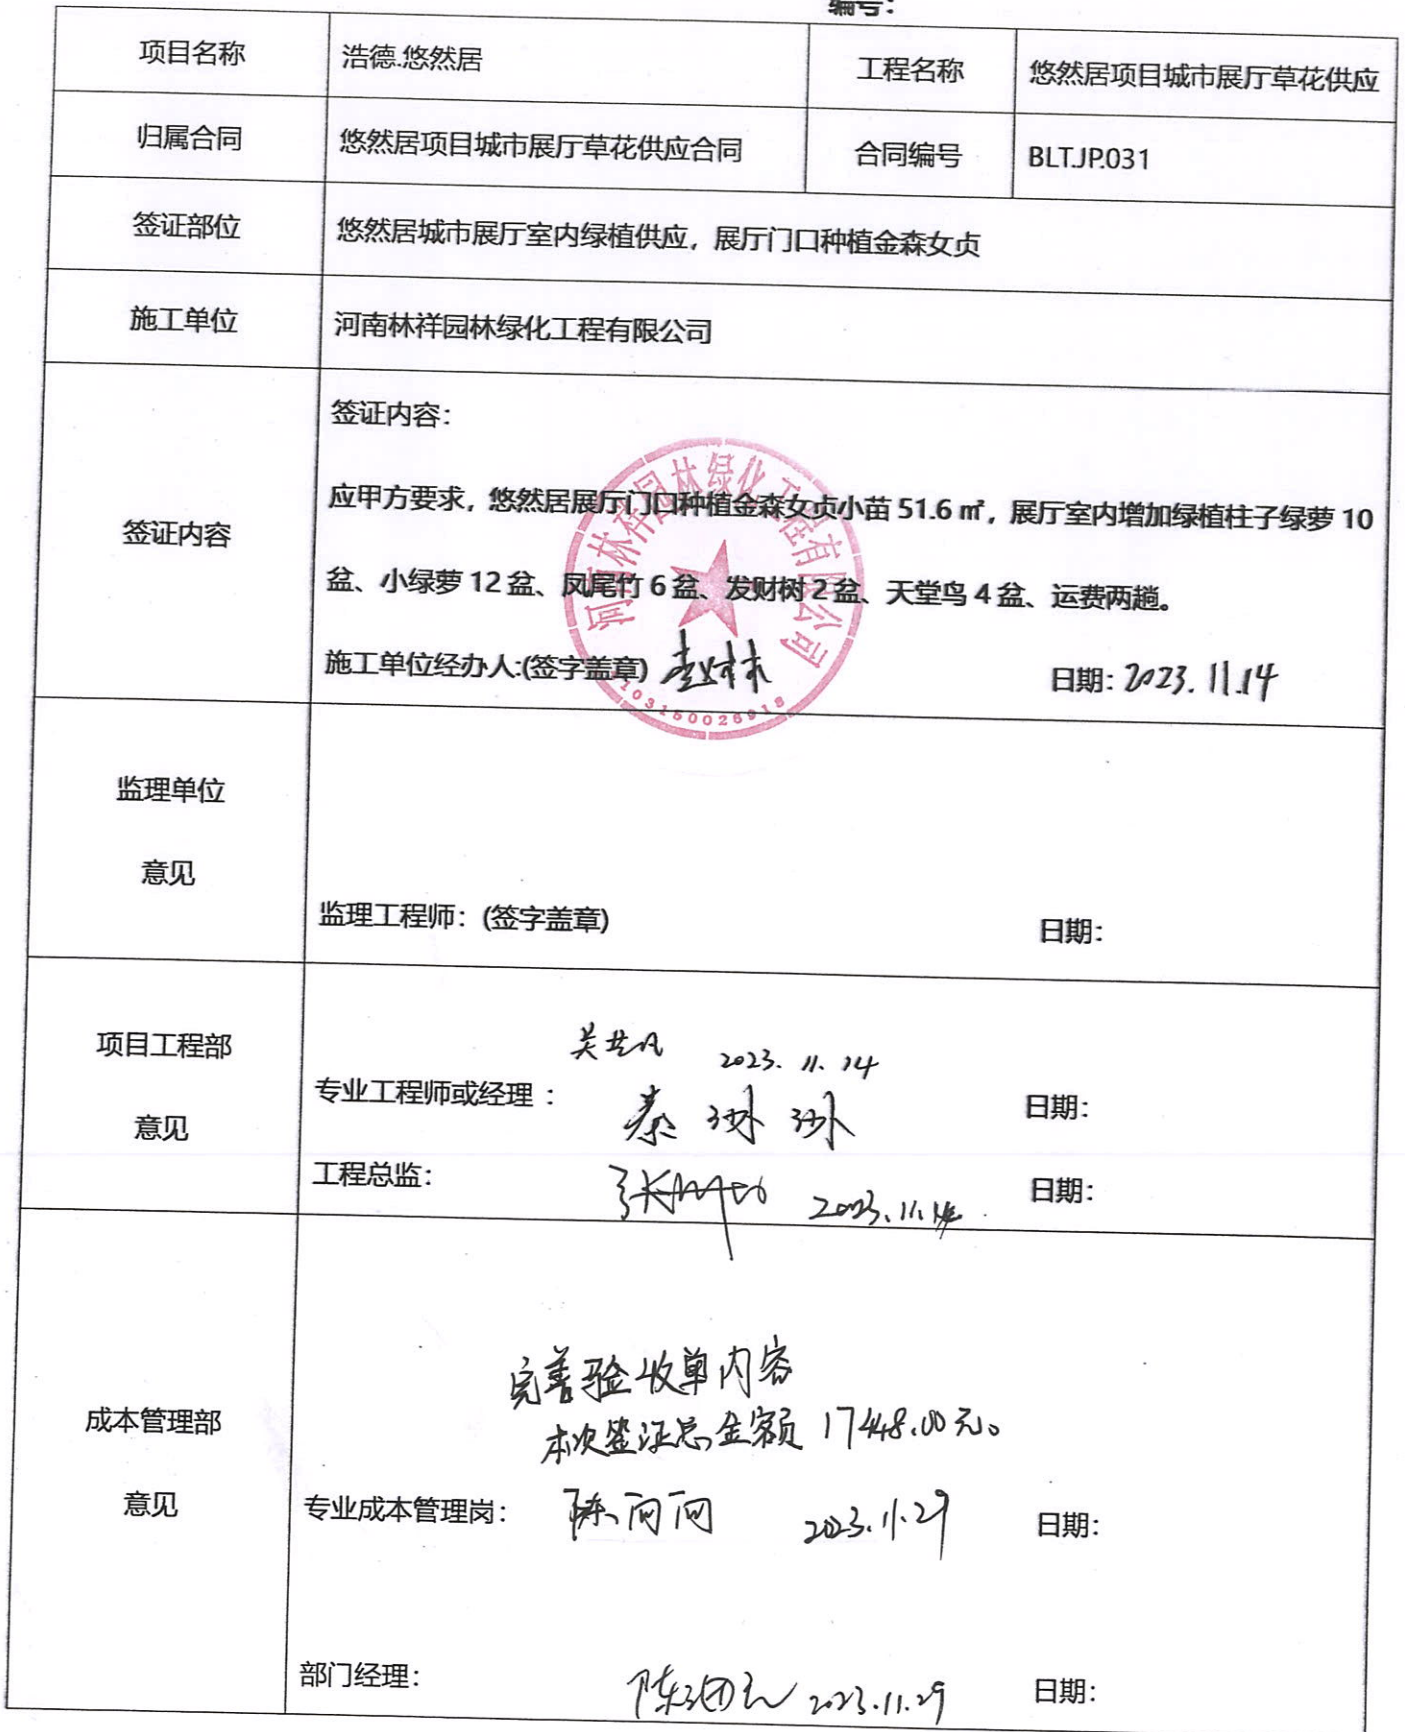 编号：
项目名称 浩德.悠然居 工程名称 悠然居项目城市展厅草花供应
归属合同 悠然居项目城市展厅草花供应合同 合同编号 BLT.JP.031
签证部位 悠然居城市展厅室内绿植供应，展厅门口种植金森女贞
施工单位 河南林祥园林绿化工程有限公司
签证内容：
应甲方要求，悠然居展厅门口种植金森女贞小苗 51.6 ㎡，展厅室内增加绿植柱子绿萝 10
签证内容
盆、小绿萝 12 盆、凤尾竹 6 盆、发财树 2 盆、天堂鸟 4 盆、运费两趟。
河南林祥园林绿化工程有限公司
施工单位经办人:(签字盖章) 日期：2023.11.14
监理单位
意见
监理工程师：(签字盖章) 日期：
项目工程部
2023.11.14
专业工程师或经理： 秦琳琳 日期：
意见
工程总监： 2023.11.14 日期：
完善验收单内容
本次签证总金额 17448.00元。
成本管理部
意见
专业成本管理岗： 陈向向 2023.11.29 日期：
部门经理： 2023.11.29 日期：